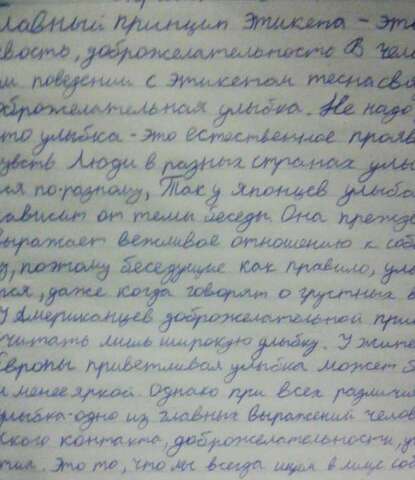 лавный принцип этикета - это
ивость, доброжелательность В чело
ом поведении с этикетом тесна свя
оброжелательная улыбка. Не надо
что улыбка - это естественное прояв
чувств Люди в разных странах улы
ся по-разному, Так у японцев улыбк
зависит от темы беседы. Она прежде
выражает вежливое отношению к соб
у, поэтому беседущие как правило, улы
тся, даже когда говорят о грустных в
У Американцев доброжелательной прин
считать лишь широкую улыбку. У жите
Европы приветливая улыбка может б
и менее яркой. Однако при всех различи
улыбка-одно из главных выражений челов
ского контакта, доброжелательности, у
тия. Это то, что мы всегда ищем в лице соб